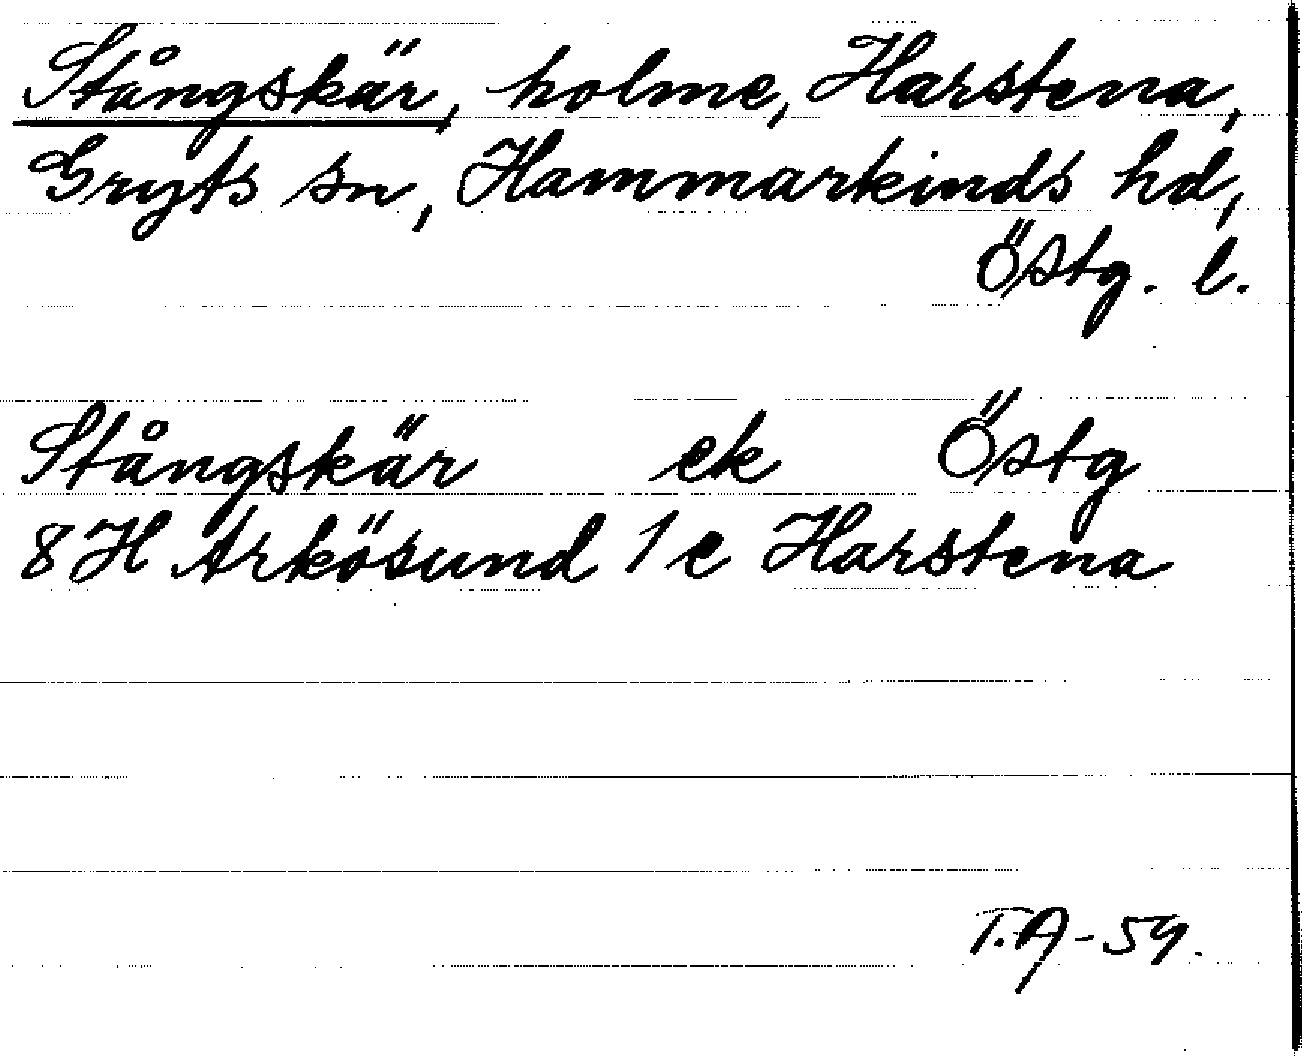 Stångskär, holme, Harstena,
Gryts sn, Hammarkinds hd,
Östg. l.
Stångskär ek Östg
8H Arkösund 1 e Harstena
T.A-59.